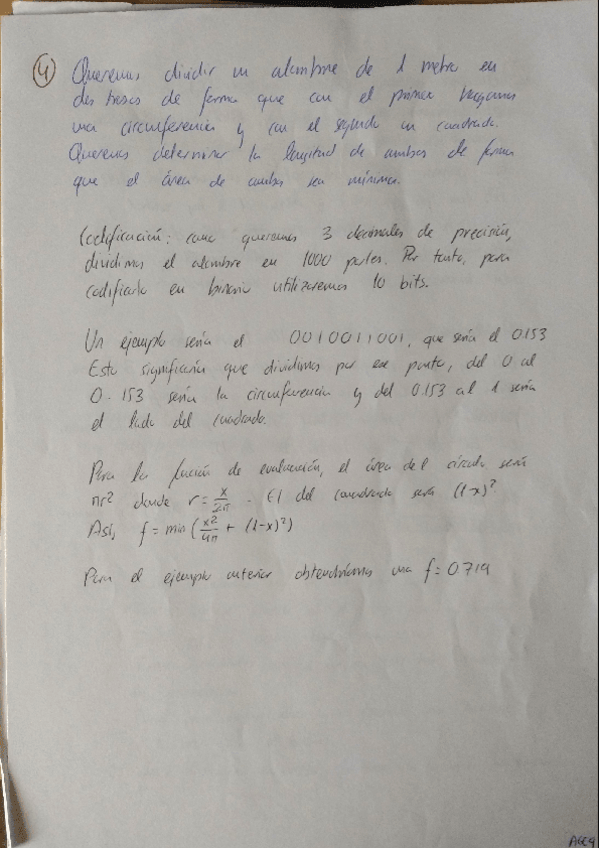 4
Queremos dividir un alambre de 1 metro en
dos trozos de forma que con el primero hagamos
una circunferencia y con el segundo un cuadrado.
Queremos determinar la longitud de ambos de forma
que el área de ambos sea mínima.
Codificación: como queremos 3 decimales de precisión,
dividimos el alambre en 1000 partes. Por tanto, para
codificarlo en binario utilizaremos 10 bits.
Un ejemplo sería el 0010011001, que sería el 0.153
Esto significaría que dividimos por ese punto, del 0 al
0.153 sería la circunferencia y del 0.153 al 1 sería
el lado del cuadrado.
Para la función de evaluación, el área del círculo será
πr² donde r = x/2π. El del cuadrado será (1-x)²
Así, f = min (x²/4π + (1-x)²)
Para el ejemplo anterior obtendríamos una f = 0.719